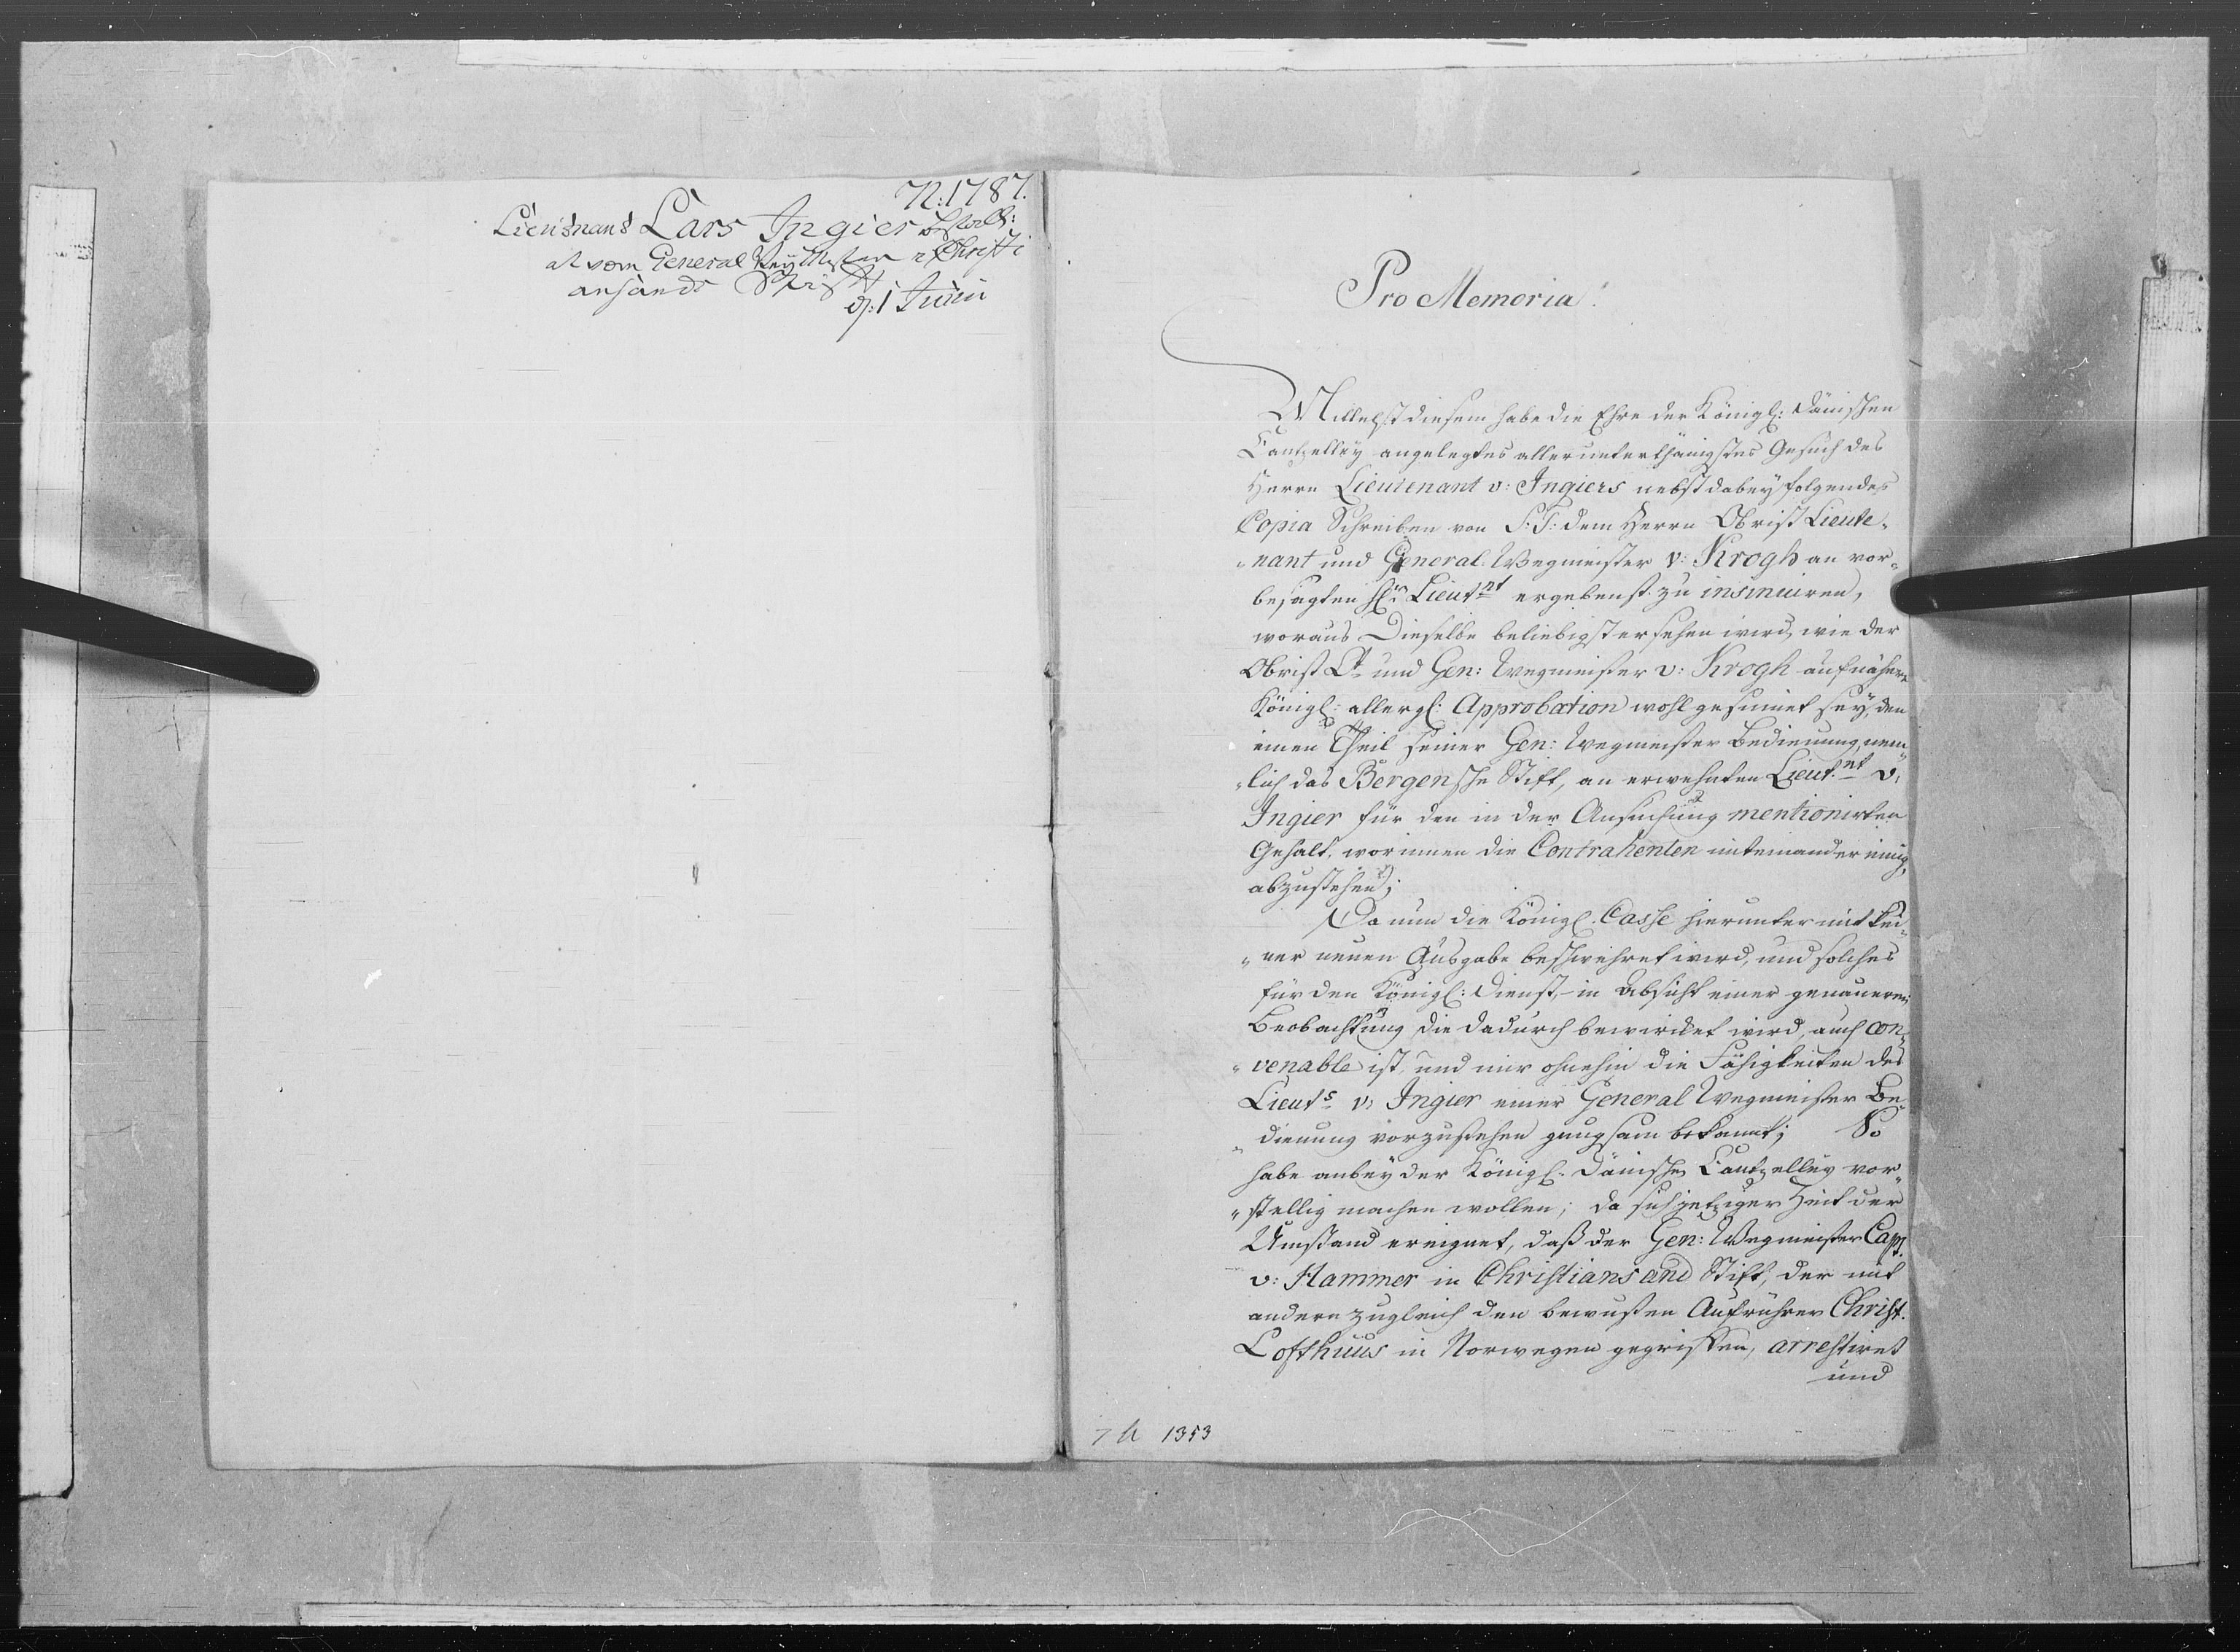 N: 1787.
Lieutnant Lars Ingier
at være General Vey Mester i Christi
ansands Stift
d: 1 Junii
Pro Memoria.
Mittelst diesem habe die Ehre der Königl: Dänischen
Cantzelley angelegtes allerunterthänigstes Gesuch des
Herrn Lieutenant v: Ingiers nebst dabey folgendes
Copia Schreiben von S: T: dem Herrn Obrist Lieute-
-nant und General-Wegmeister v: Krogh an vor-
besagten Hr. Lieutnt ergebenst zu insinuiren,
woraus Dieselbe beliebigst ersehen wird, wie der
Obrist Lt und Gen: Wegmeister v: Krogh auf nähere
Königl: allergl: Approbation wohl gesinnet sey, den
einen Theil seiner Gen: Wegmeister Bedienung, nem-
-lich das Bergensche Stift, an erwehnten Lieut.nt v:
Ingier für den in der Ansuchung mentionirten
Gehalt, worinnen die Contrahenten miteinander einig,
abzustehen;
Da nun die Königl. Casse hierunter mit kei-
-ner neuen Ausgabe beschwehret wird, und solches
für den Königl: Dienst, in Absicht einer genaueren
Beobachtung die dadurch bewircket wird, auch con-
-venable ist, und mir ohnehin die Fähigkeiten des
Lieuts v: Ingier einer General Wegmeister Be-
-dienung vorzustehen gnugsam bekannt; So
habe anbey der Königl: Dänischen Cantzelley vor-
-stellig machen wollen; da sich jetziger Zeit der
Umstand ereignet, daß der Gen: Wegmeister Capt.
v: Hammer in Christiansand Stift, der mit
andern zugleich den bewusten Aufrührer Christ.
Lofthuus in Norwegen gegriffen, arrestiret
und
1353